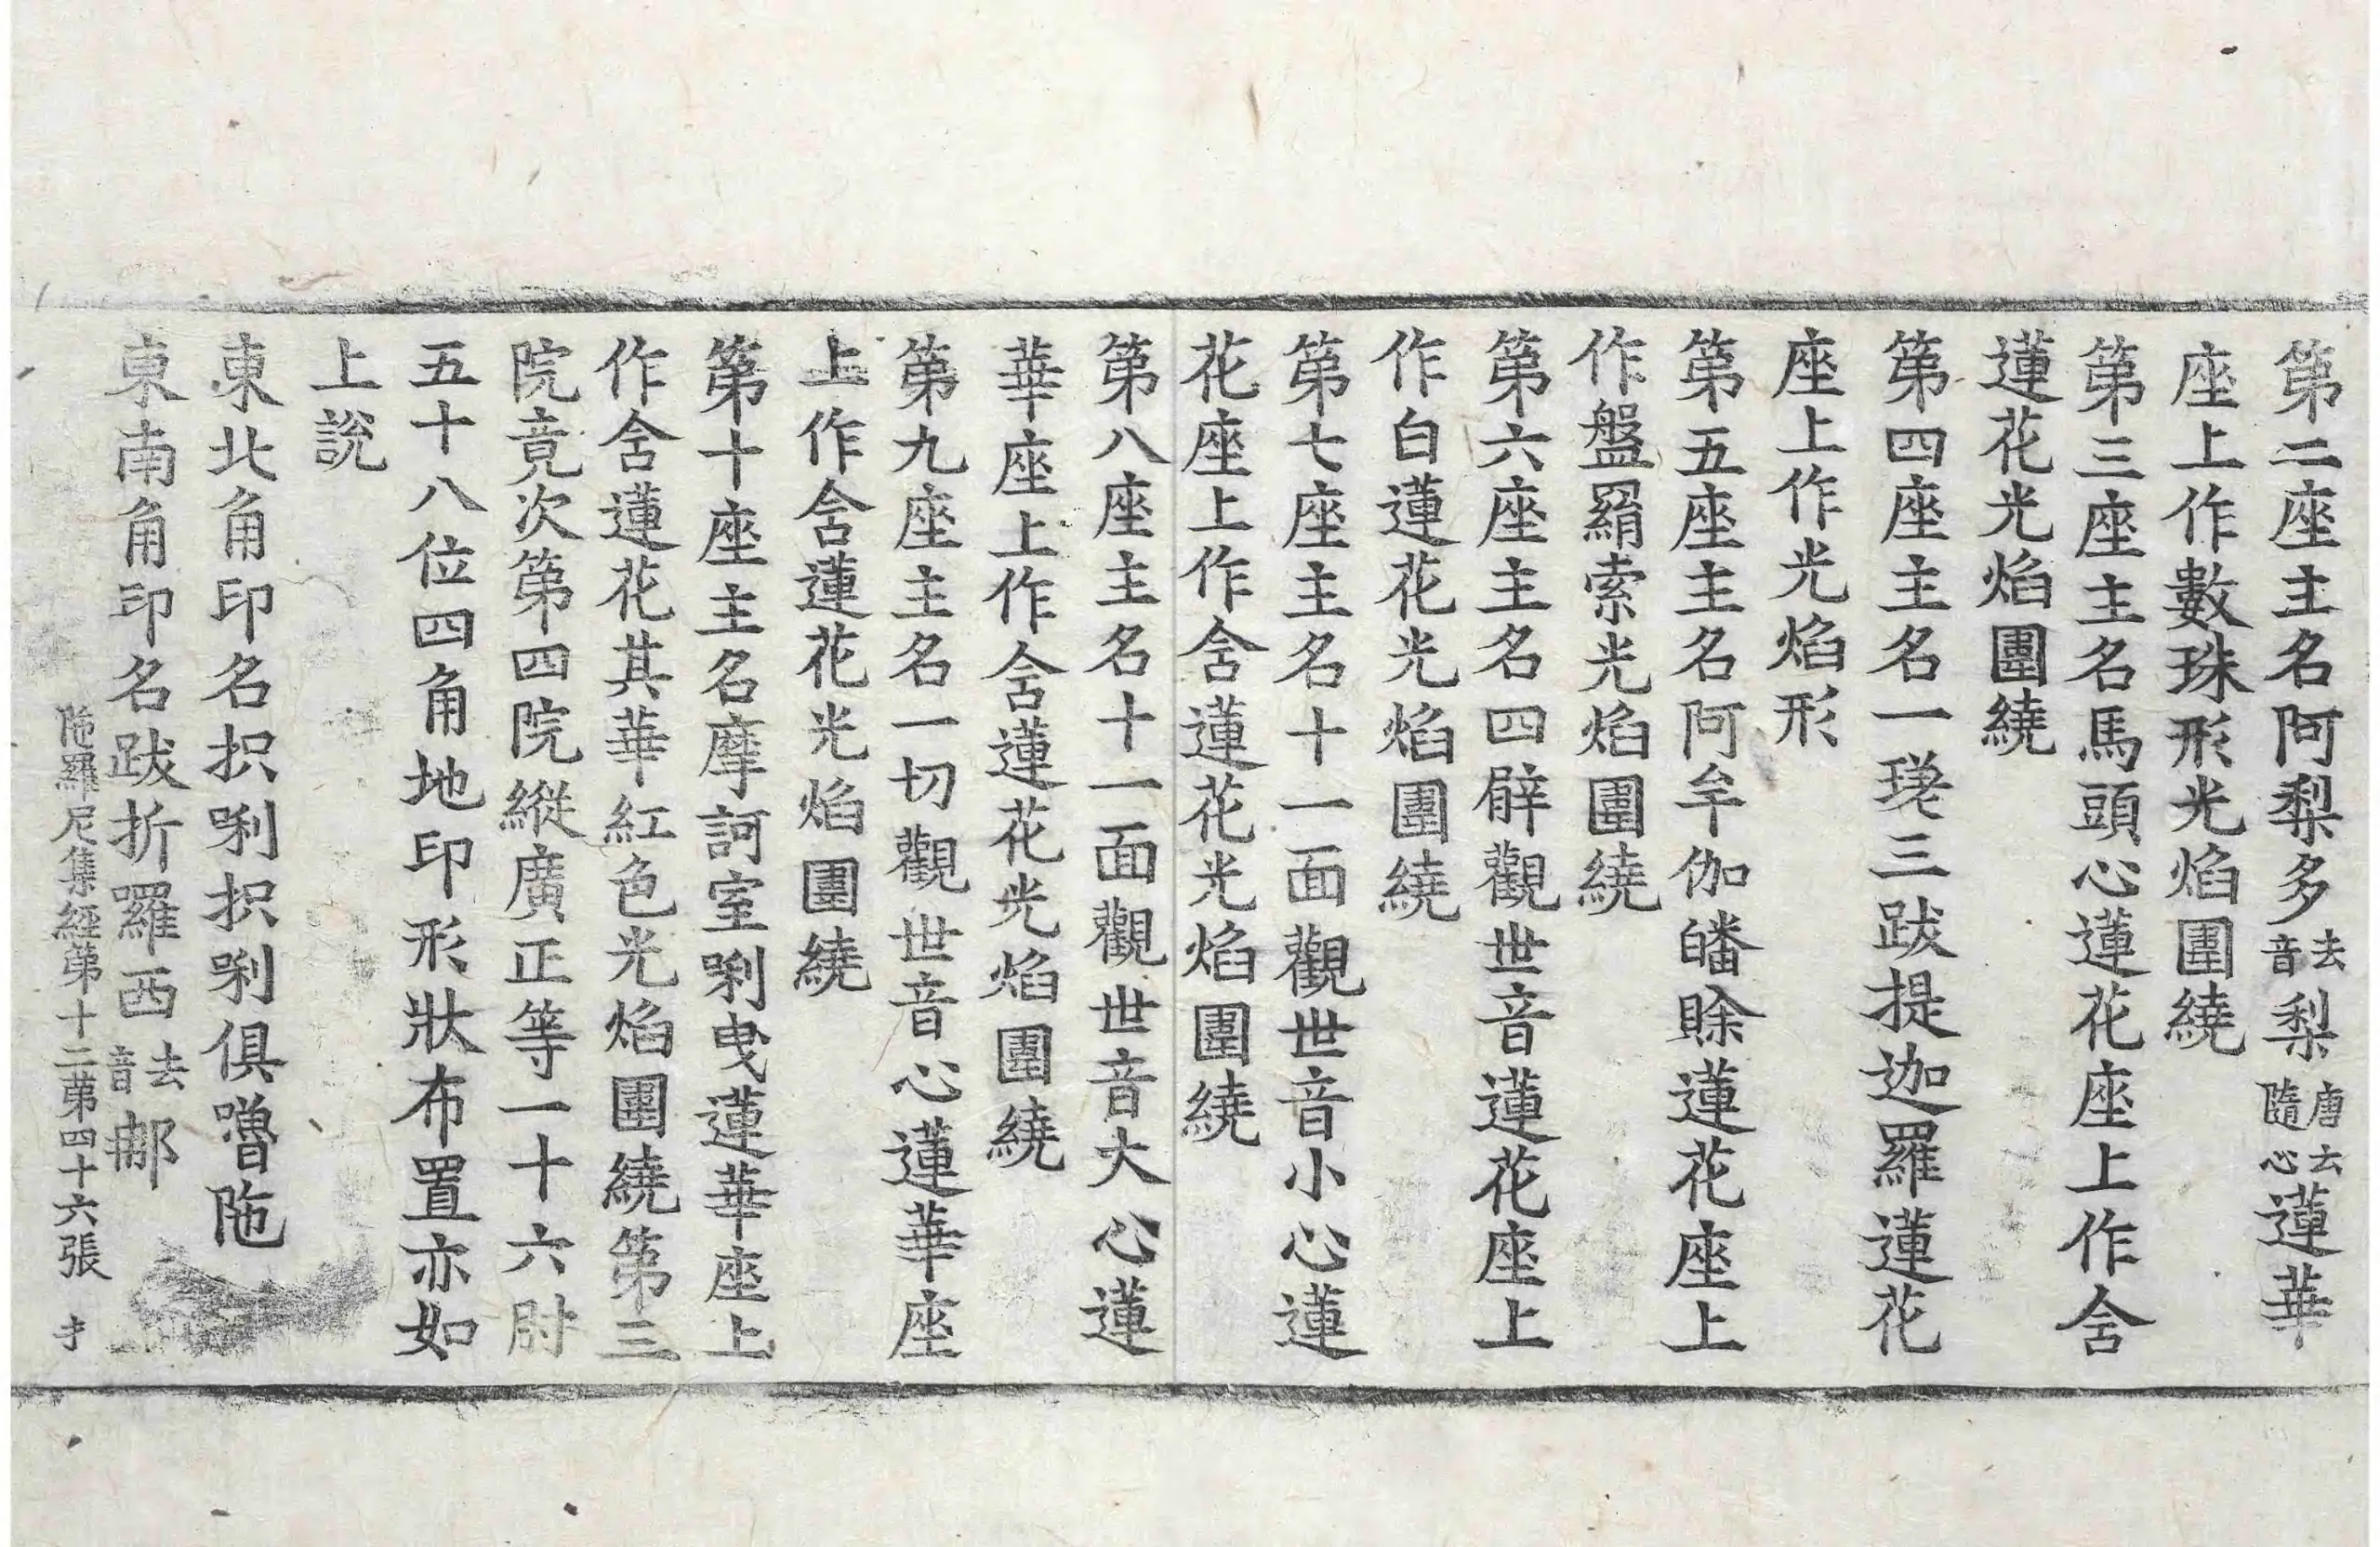 第二座主名阿梨多去音梨唐去隨心蓮華
座上作數珠形光焰圍繞
第三座主名馬頭心蓮花座上作舍
蓮花光焰圍繞
第四座主名一瑳三跋提迦羅蓮花
座上作光焰形
第五座主名阿牟伽皤賖蓮花座上
作盤羂索光焰圍繞
第六座主名四臂觀世音蓮花座上
作白蓮花光焰圍繞
第七座主名十一面觀世音小心蓮
花座上作舍蓮花光焰圍繞
第八座主名十一面觀世音大心蓮
華座上作舍蓮花光焰圍繞
第九座主名一切觀世音心蓮華座
上作舍蓮花光焰圍繞
第十座主名摩訶室唎曳蓮華座上
作舍蓮花其華紅色光焰圍繞第三
院竟次第四院縱廣正等一十六肘
五十八位四角地印形狀布置亦如
上說
東北角印名抧唎抧唎俱嚕陁
東南角印名跋折囉西去音那
陁羅尼集經第十二第四十六張 才